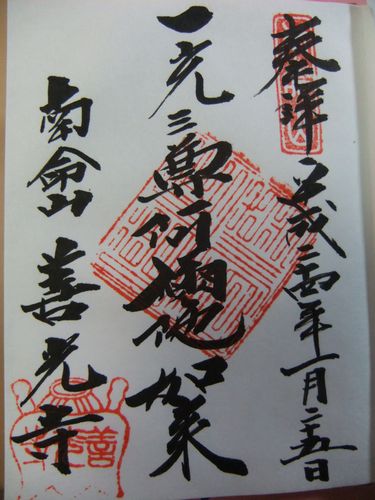 奉拝 平成二十四年一月二十五日
一光三尊阿彌陀如来
南命山 善光寺